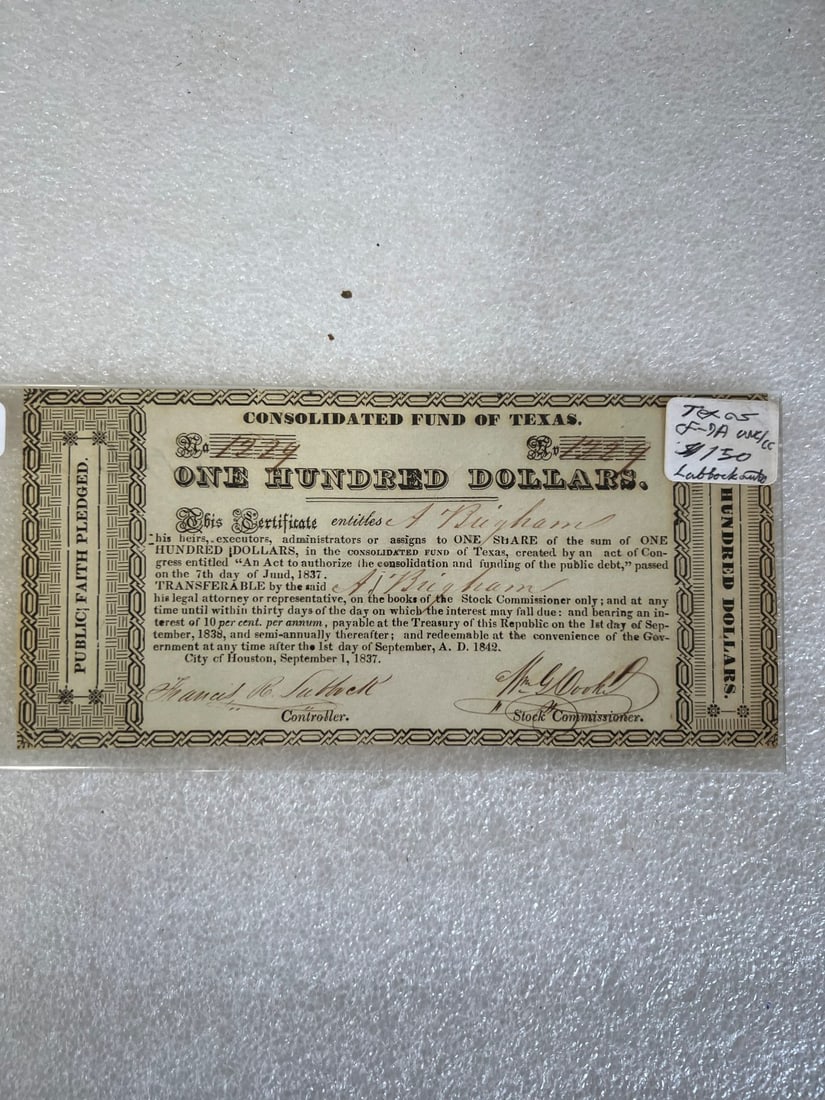 CONSOLIDATED FUND OF TEXAS.
No 1229 No 1229
ONE HUNDRED DOLLARS.
This Certificate entitles A Brigham
his heirs, executors, administrators or assigns to ONE SHARE of the sum of ONE
HUNDRED DOLLARS, in the CONSOLIDATED FUND of Texas, created by an act of Con-
gress entitled "An Act to authorize the consolidation and funding of the public debt," passed
on the 7th day of Jund, 1837.
TRANSFERABLE by the said A Brigham
his legal attorney or representative, on the books of the Stock Commissioner only; and at any
time until within thirty days of the day on which the interest may fall due: and bearing an in-
terest of 10 per cent. per annum, payable at the Treasury of this Republic on the 1st day of Sep-
tember, 1838, and semi-annually thereafter; and redeemable at the convenience of the Gov-
ernment at any time after the 1st day of September, A. D. 1842.
City of Houston, September 1, 1837.
Francis R. Lubbock Wm G Cooke
Controller. Stock Commissioner.
PUBLIC FAITH PLEDGED.
HUNDRED DOLLARS.
Texas
$150
Lubbock auto